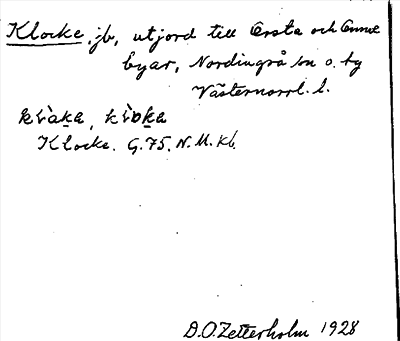 Klocke, jb, utjord till Orsta och Omne
byar, Nordingrå sn o. by
Västernorrl. l.
Klocke. G.75. N.M.Kb.
D.O.Zetterholm 1928